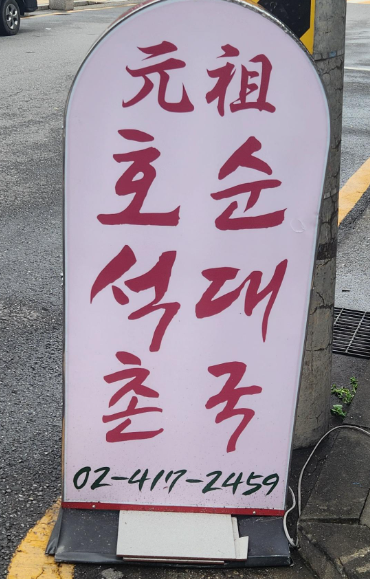 元祖
호석촌
순대국
02-417-2459